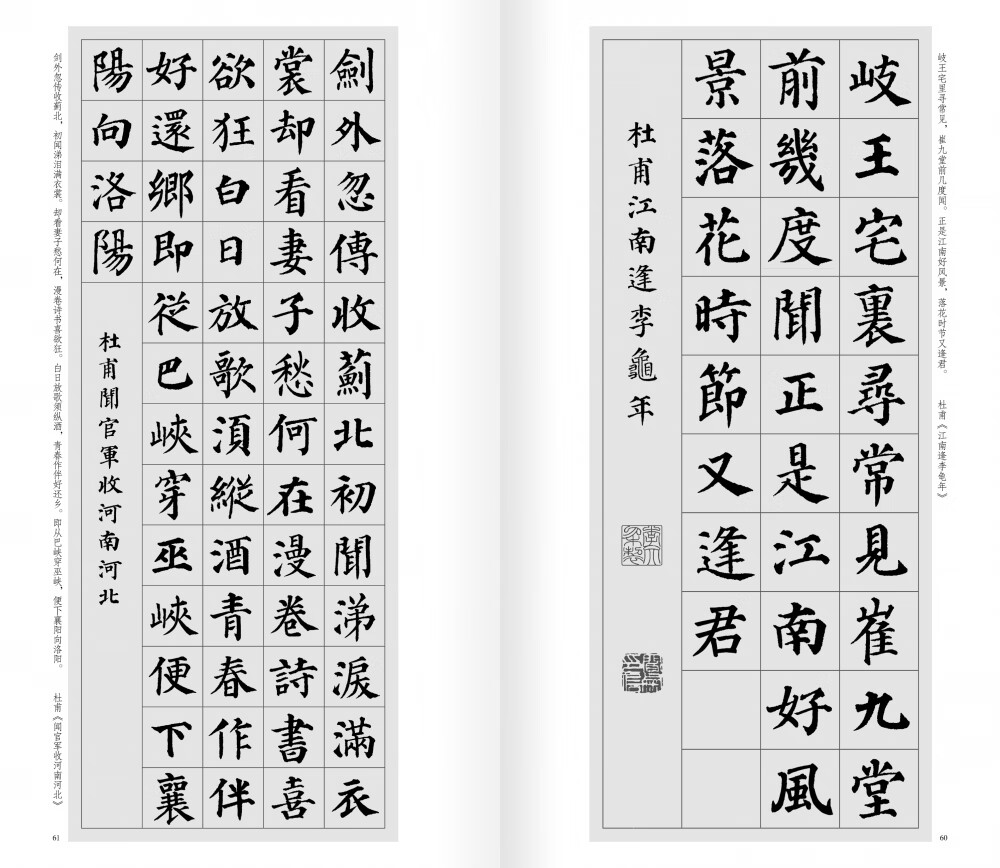 岐王宅里寻常见，崔九堂前几度闻。正是江南好风景，落花时节又逢君。 杜甫《江南逢李龟年》
岐王宅裏尋常見崔九堂
前幾度聞正是江南好風
景落花時節又逢君
杜甫江南逢李龜年
60
劍外忽傳收薊北初聞涕淚滿衣
裳却看妻子愁何在漫卷詩書喜
欲狂白日放歌須縱酒青春作伴
好還鄉即從巴峽穿巫峽便下襄
陽向洛陽
杜甫聞官軍收河南河北
剑外忽传收蓟北，初闻涕泪满衣裳。却看妻子愁何在，漫卷诗书喜欲狂。白日放歌须纵酒，青春作伴好还乡。即从巴峡穿巫峡，便下襄阳向洛阳。 杜甫《闻官军收河南河北》
61